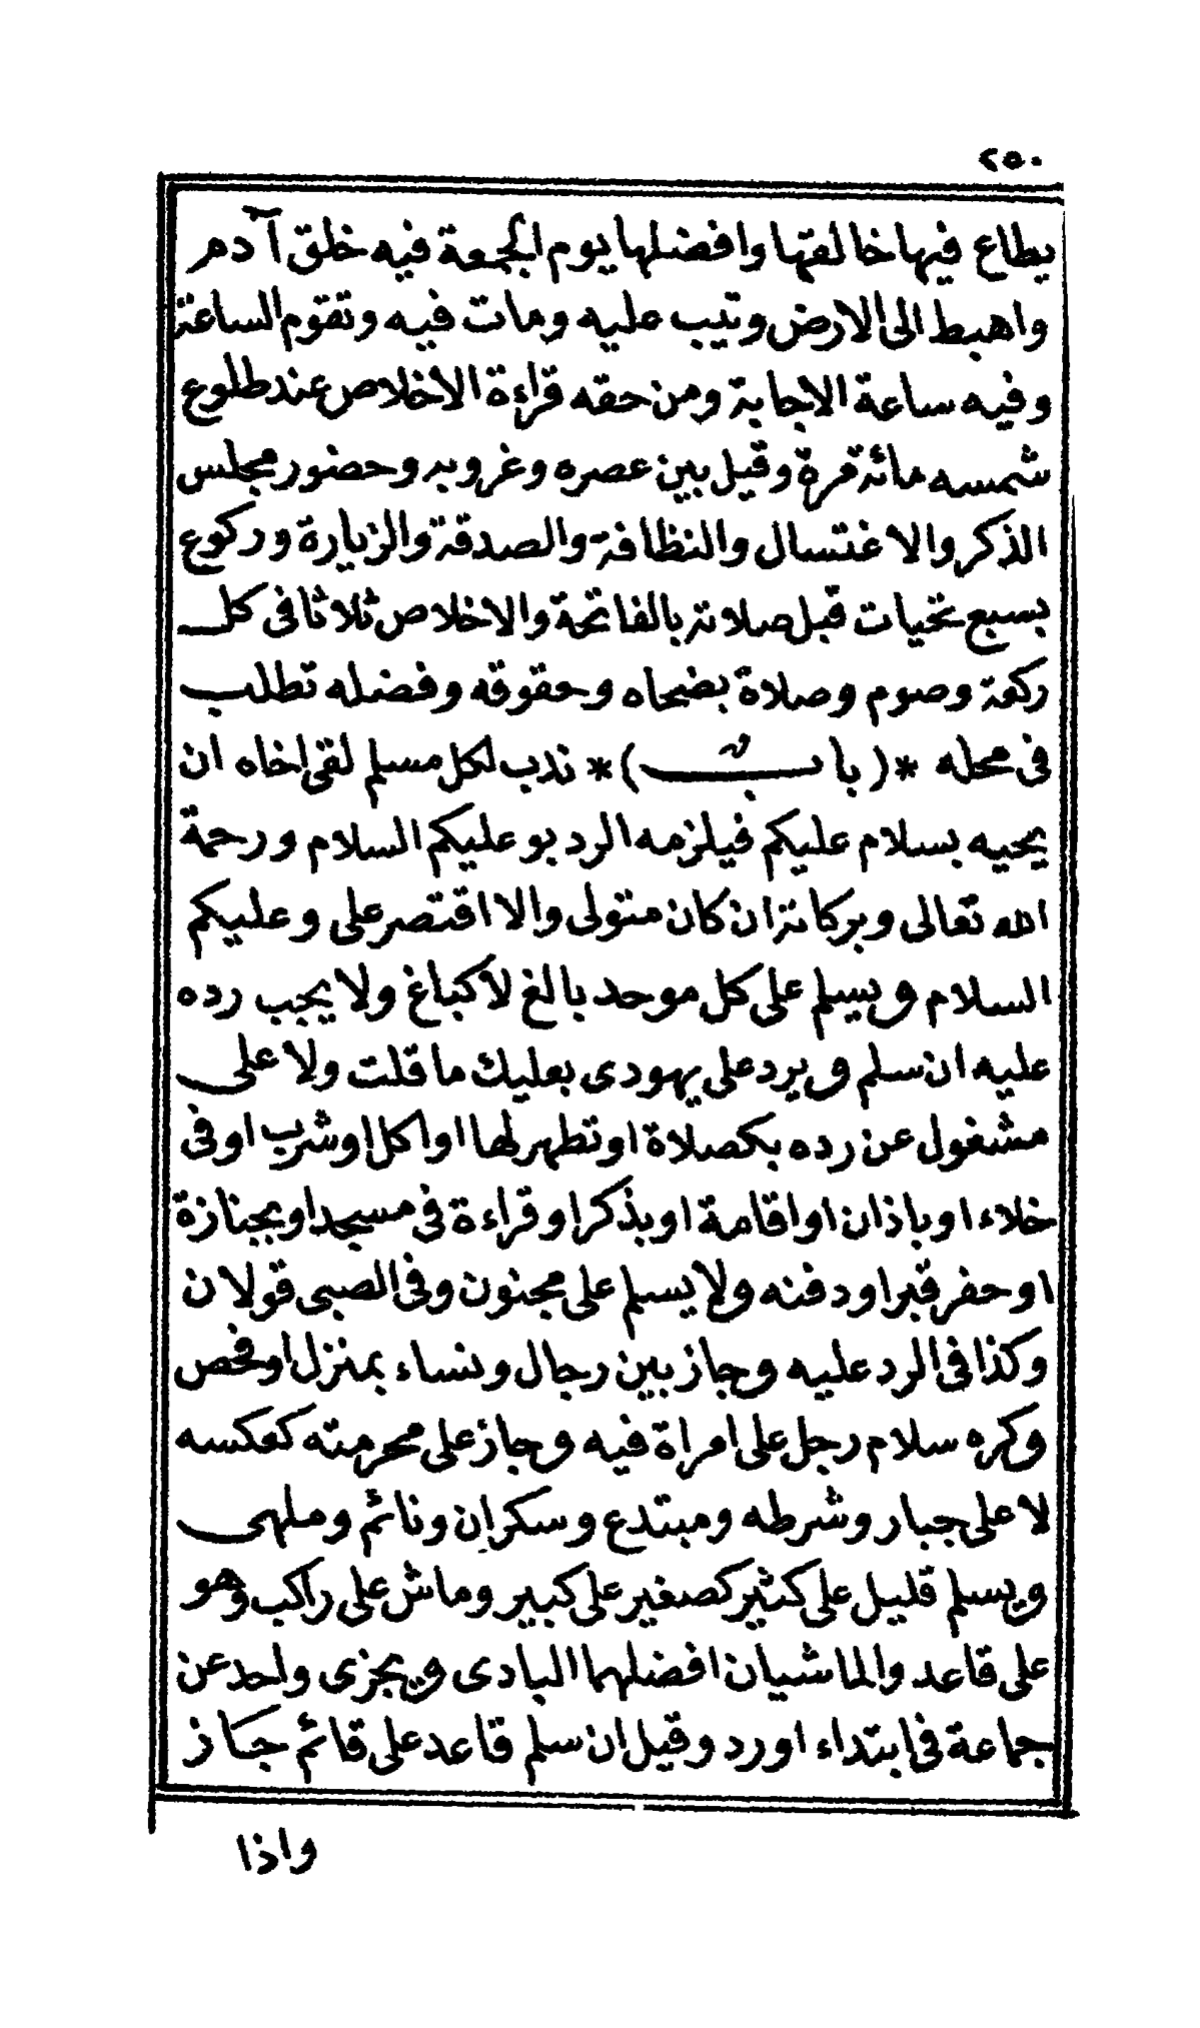 ٢٥٠
يطاع فيها خالقها وافضلها يوم الجمعة فيه خلق آدم
واهبط الى الارض وتيب عليه ومات فيه وتقوم الساعة
وفيه ساعة الاجابة ومن حقه قراءة الاخلاص عند طلوع
شمسه مائة مرة وقيل بين عصره وغروبه وحضور مجلس
الذكر والاغتسال والنظافة والصدقة والزيارة وركوع
بسبع تحيات قبل صلاته بالفاتحة والاخلاص ثلاثا فى كل
ركعة وصوم وصلاة بضحاه وحقوقه وفضله تطلب
فى محله *(باب)* ندب لكل مسلم لقى اخاه ان
يحييه بسلام عليكم فيلزمه الرد بو عليكم السلام ورحمة
الله تعالى وبركاته ان كان متولى والا اقتصر على وعليكم
السلام ويسلم على كل موحد بالغ لا كباغ ولا يجب رده
عليه ان سلم ويرد على يهودى بعليك ما قلت ولا على
مشغول عن رده بكصلاة او تطهر لها او اكل او شرب او فى
خلاء او باذان او اقامة او بذكر او قراءة فى مسجد او بجنازة
او حفر قبر او دفنه ولا يسلم على مجنون وفى الصبى قولان
وكذا فى الرد عليه وجاز بين رجال ونساء بمنزل او فحص
وكره سلام رجل على امراة فيه وجاز على محرمته كعكسه
لا على جبار وشرطه ومبتدع وسكران ونائم وملهى
ويسلم قليل على كثير كصغير على كبير وماش على راكب وهو
على قاعد والماشيان افضلهما البادى ويجزى واحد عن
جماعة فى ابتداء او رد وقيل ان سلم قاعد على قائم جاز
واذا